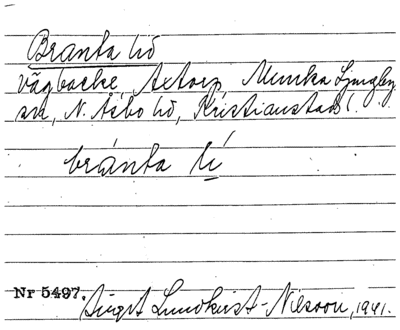 Branta lid
vägbacke, Axtorp, Munka Ljungby
sn, N. Åsbo hd, Kristianstads l.
bránta lí
Nr 5497. Birgit Lundkvist-Nilsson, 1941.